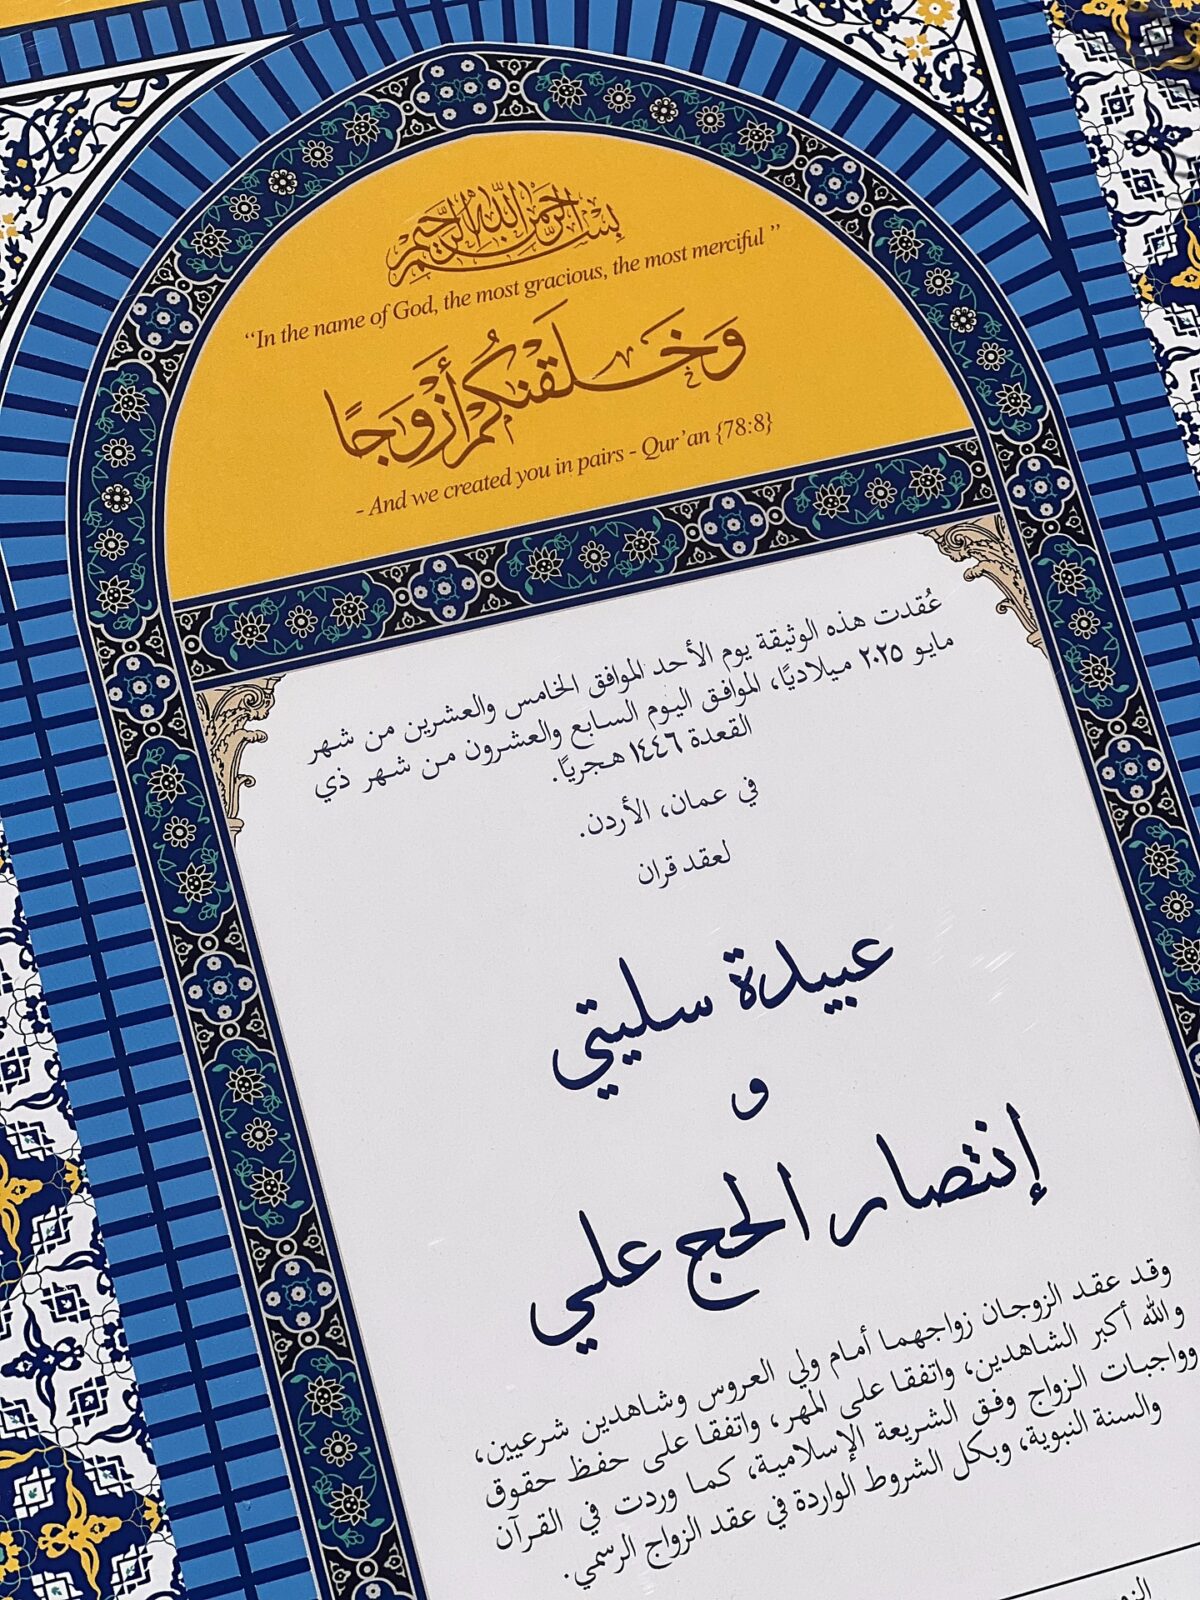 بِسْمِ اللَّهِ الرَّحْمَنِ الرَّحِيمِ
“In the name of God, the most gracious, the most merciful ”
وَخَلَقْنَكُمْ أَزْوَجًا
- And we created you in pairs - Qur’an {78:8}
عُقدت هذه الوثيقة يوم الأحد الموافق الخامس والعشرين من شهر
مايو ٢٠٢٥ ميلاديًا، الموافق اليوم السابع والعشرون من شهر ذي
القعدة ١٤٤٦ هجريًا.
في عمان، الأردن.
لعقد قران
عبيدة سليتي
و
إنتصار الحج علي
وقد عقد الزوجان زواجهما أمام ولي العروس وشاهدين شرعيين،
والله أكبر الشاهدين، واتفقا على المهر، واتفقا على حفظ حقوق
وواجبات الزواج وفق الشريعة الإسلامية، كما وردت في القرآن
والسنة النبوية، وبكل الشروط الواردة في عقد الزواج الرسمي.